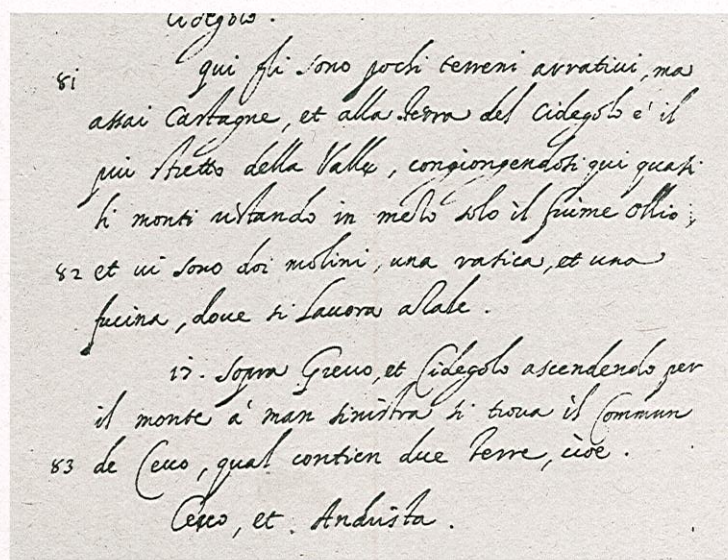 Cidegolo.
81 qui gli sono pochi terreni arrativi, ma
assai Castagne, et alla terra del Cidegolo è il
più stretto della Valle, congiongendosi qui quasi
li monti restando in mezo solo il fiume Ollio,
82 et vi sono doi molini, una rasica, et una
fucina, dove si lavora azale.
17. Sopra Grevo, et Cidegolo ascendendo per
il monte à man sinistra si trova il Commun
83 de Cevo, qual contien due Terre, cioè.
Cevo, et. Andrista.